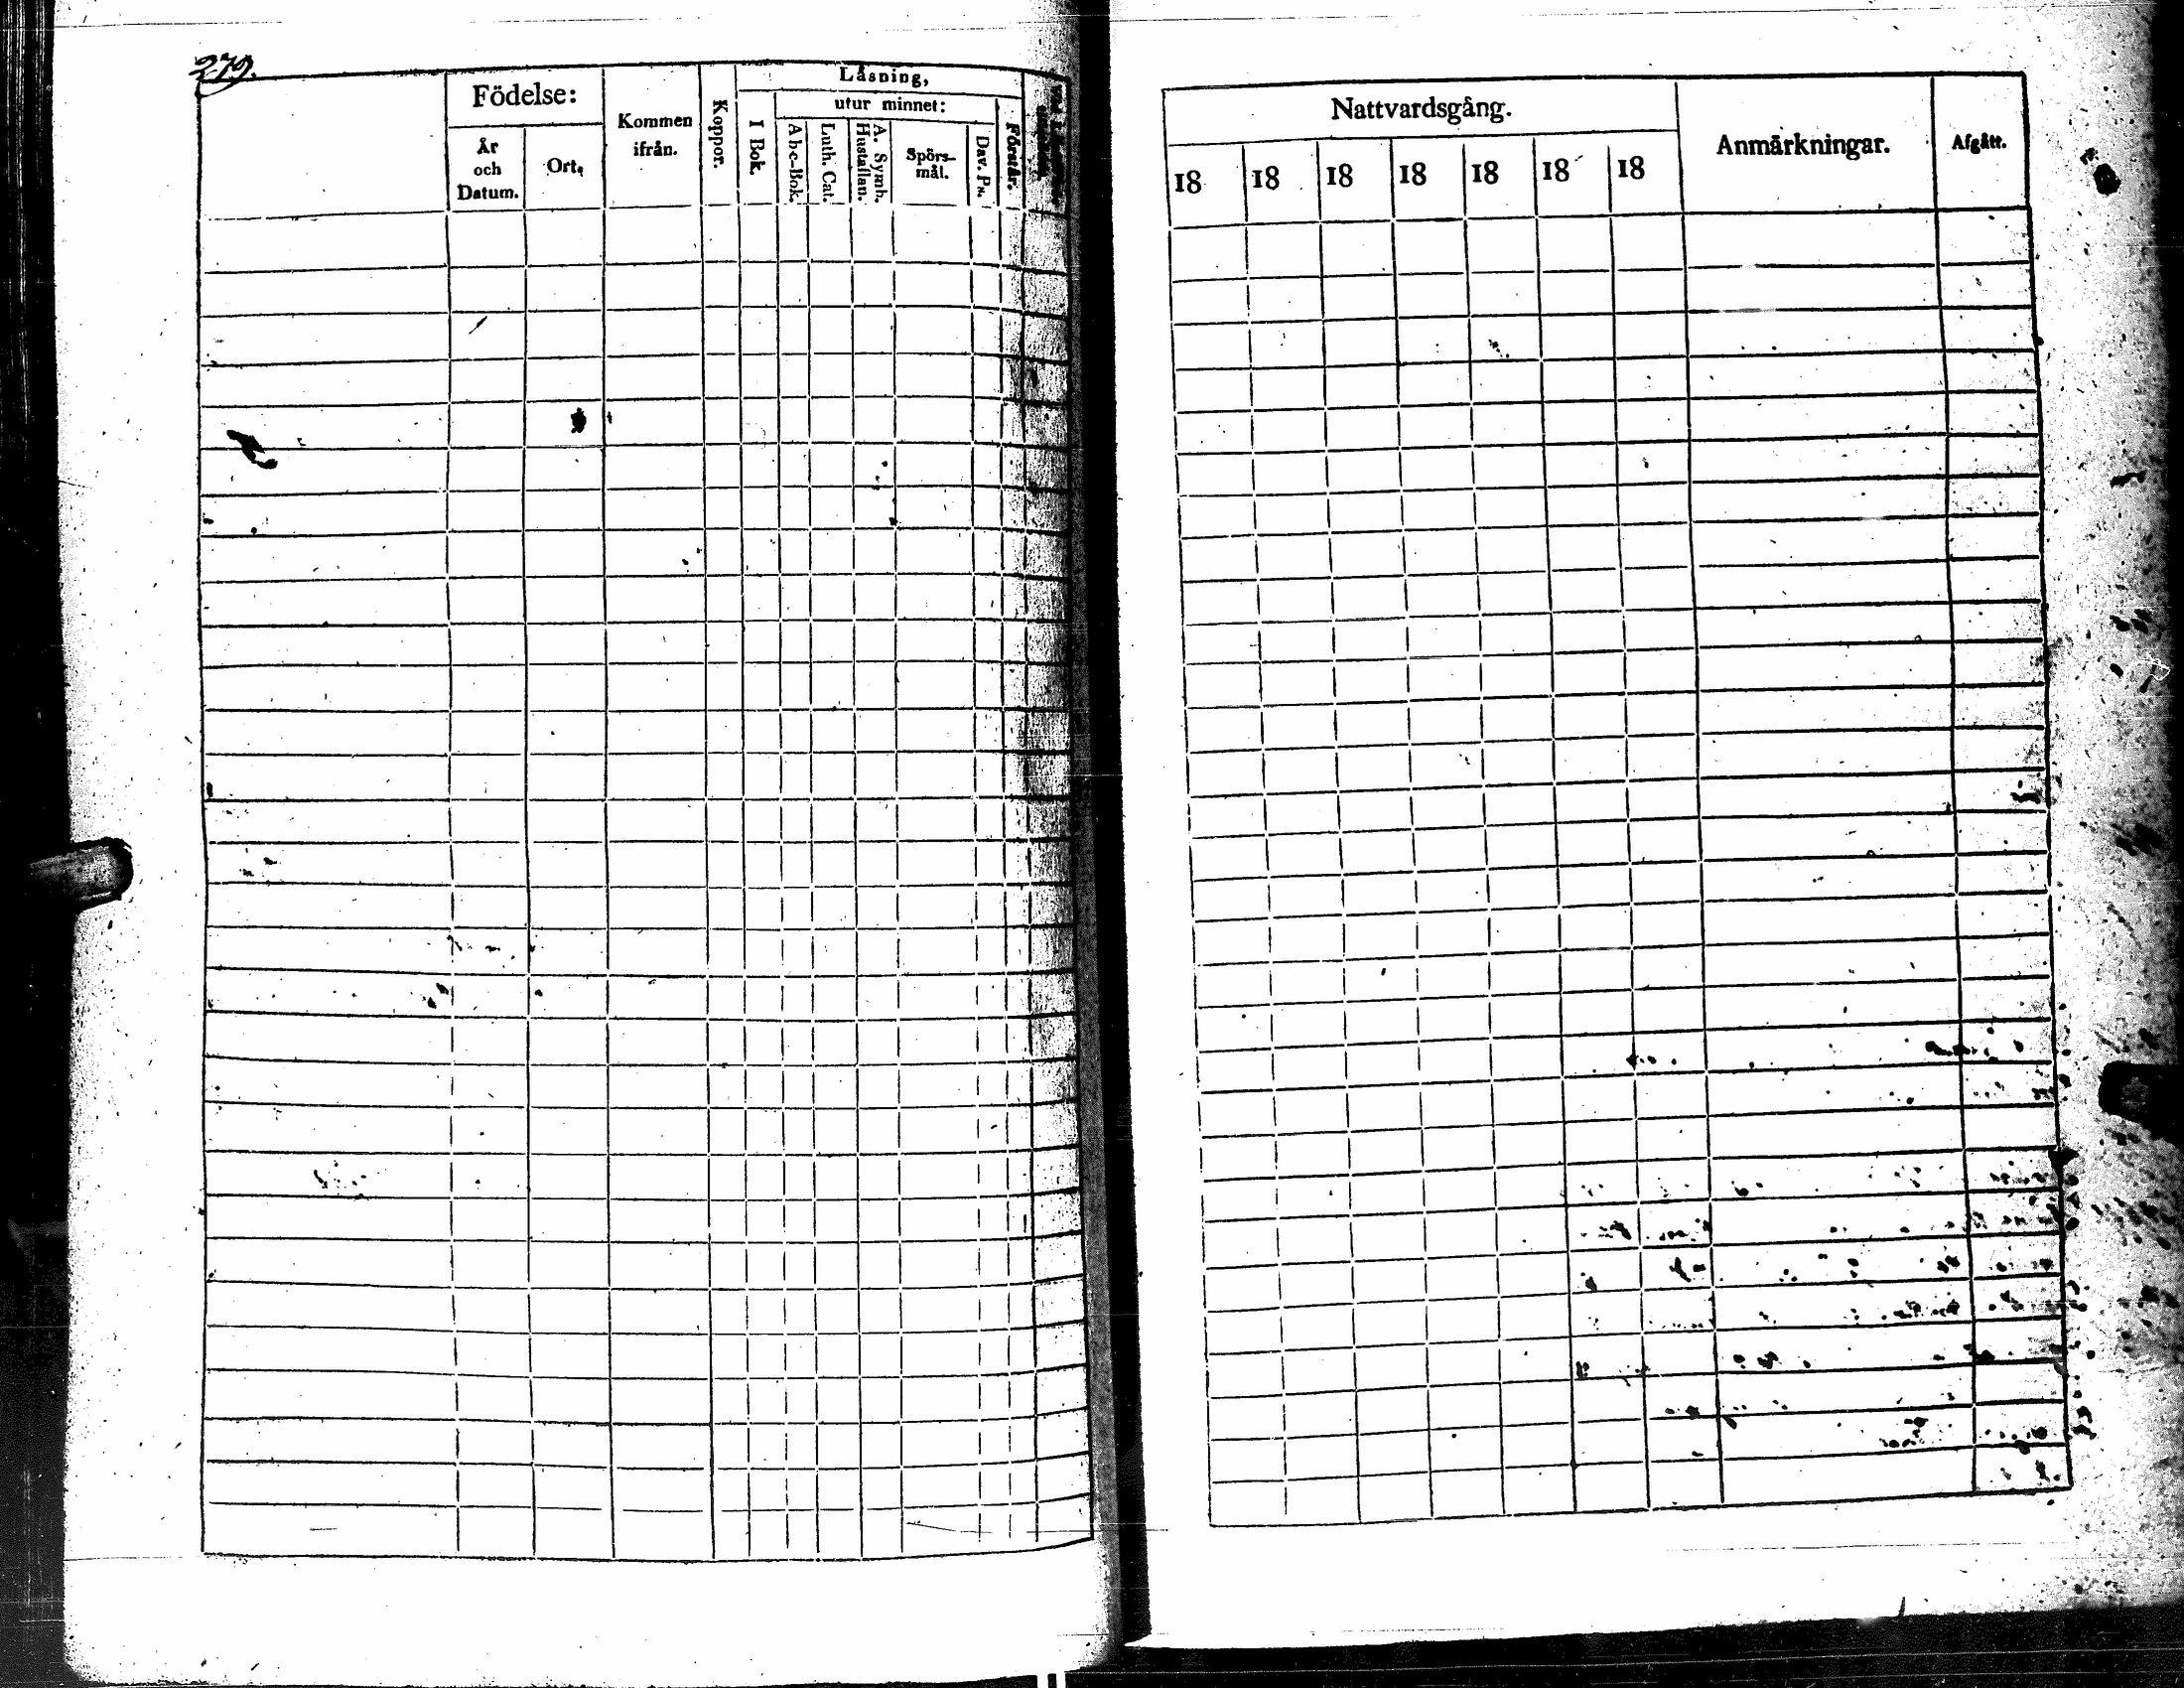 279.
Födelse:
År
och
Datum.
Ort.
Kommen
ifrån.
Koppor.
Läsning,
I Bok.
utur minnet:
Abc-Bok.
Luth. Cat.
A. Symb.
Hustaflan.
Spörs-
mål.
Dav. Ps.
Förstår.
Nattvardsgång.
18 18 18 18 18 18 18
Anmärkningar.
Afgått.